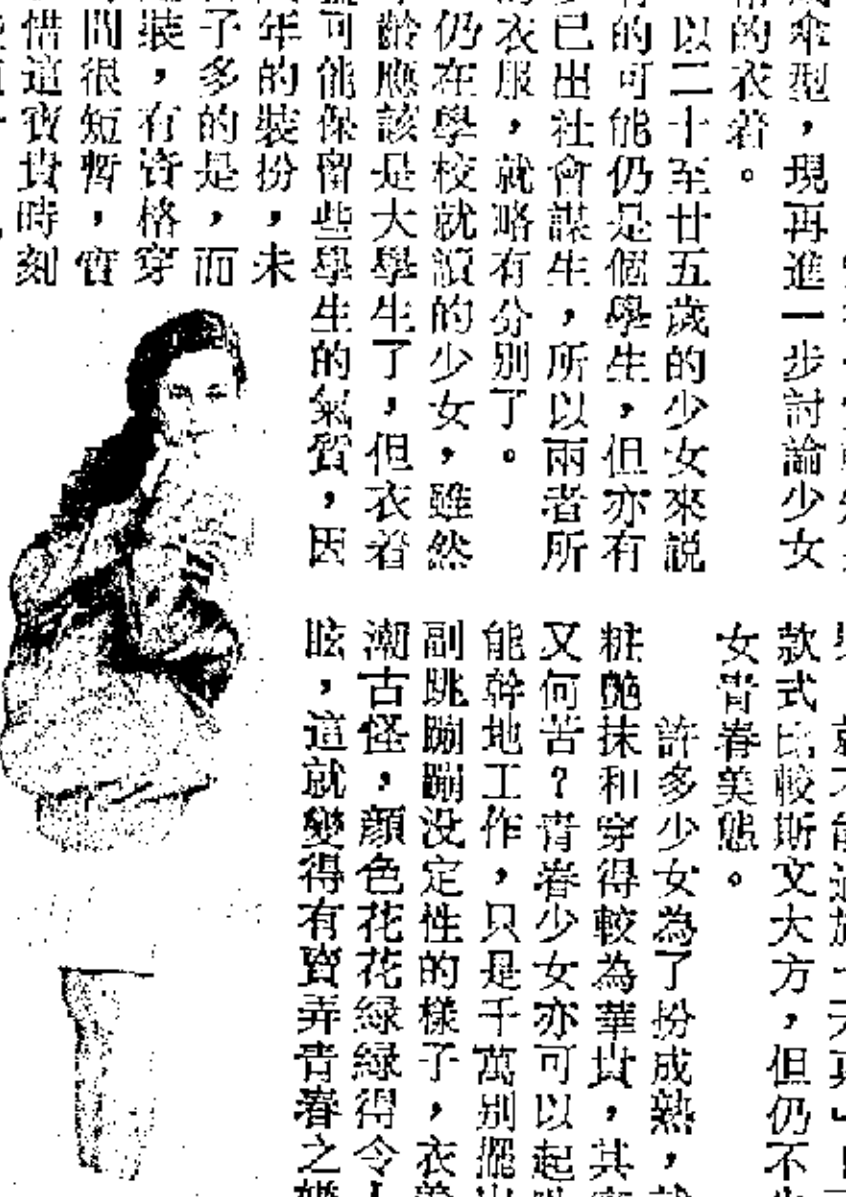 傘型，現再進一步討論少女
的衣着。
以二十至廿五歲的少女來説
的可能仍是個學生，但亦有
已出社會謀生，所以兩者所
衣服，就略有分別了。
仍在學校就讀的少女，雖然
齡應該是大學生了，但衣着
可能保留些學生的氣質，因
年的裝扮，未
子多的是，而
裝，有資格穿
間很短暫，實
惜這寶貴時刻
款式比較斯文大方，但仍不
女青春美態。
許多少女為了扮成熟，
粧艷抹和穿得較為華貴，其
又何苦？青春少女亦可以起
能幹地工作，只是千萬別擺出
副跳蹦蹦没定性的樣子，衣
潮古怪，顏色花花綠綠得令
眩，這就變得有賣弄青春之